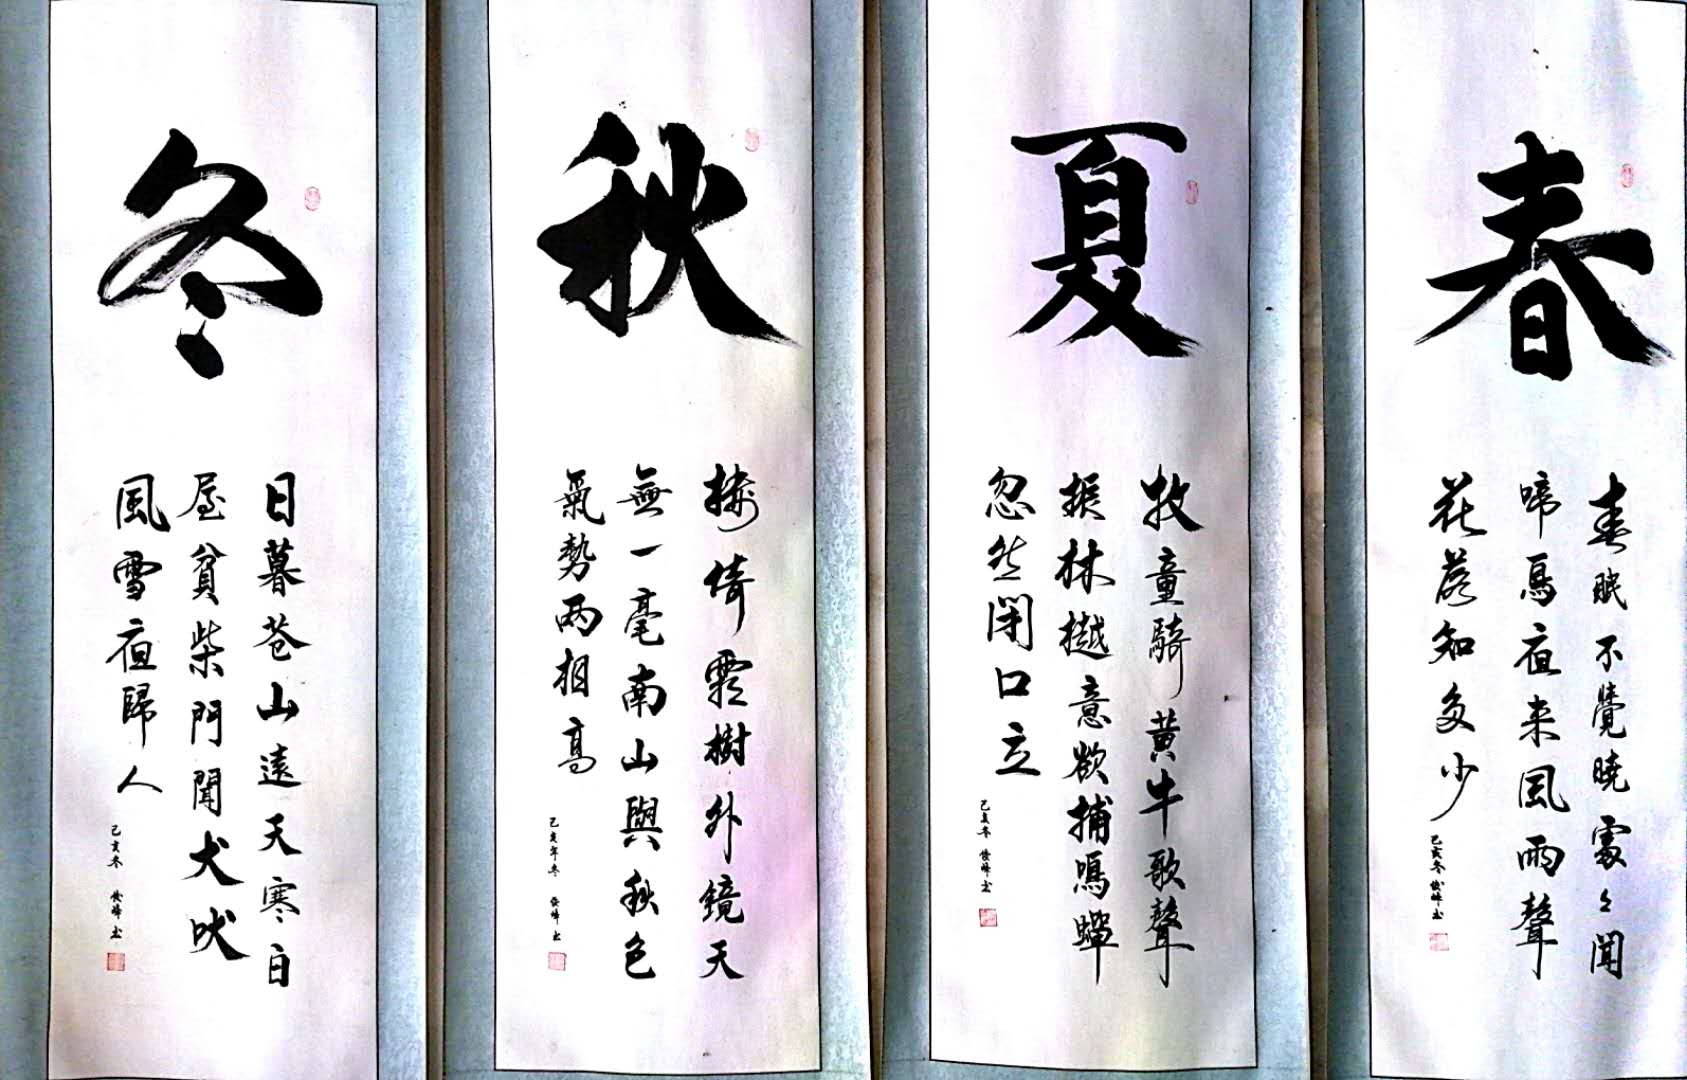 春
春眠不覺曉處々聞
啼鳥夜来風雨聲
花落知多少
己亥冬 峰书
夏
牧童騎黄牛歌聲
振林樾意欲捕鳴蟬
忽然闭口立
己亥冬 峰书
秋
楼倚霜樹外鏡天
無一毫南山與秋色
氣勢两相高
己亥年冬 峰书
冬
日暮苍山遠天寒白
屋貧柴門聞犬吠
風雪夜歸人
己亥冬 峰书